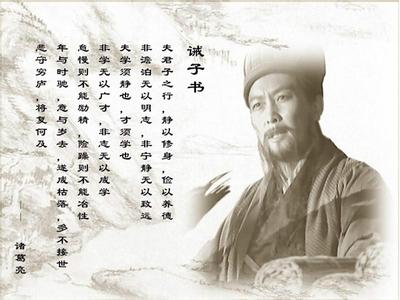 诫子书
夫君子之行，静以修身，俭以养德
非澹泊无以明志，非宁静无以致远
夫学须静也，才须学也
非学无以广才，非志无以成学
怠慢则不能励精，险躁则不能冶性
年与时驰，意与岁去，遂成枯落，多不接世
悲守穷庐，将复何及
诸葛亮